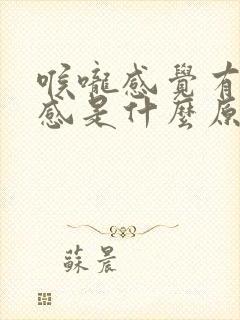 喉嚨感覺有
感是什麼原
蘇晨